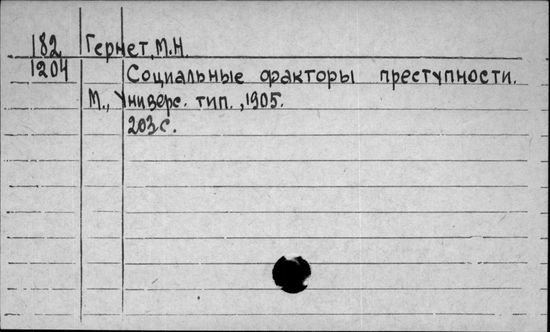 182 Гернет, М.Н.
1204 Социальные факторы преступности.
М., Универс. тип., 1905.
203 с.